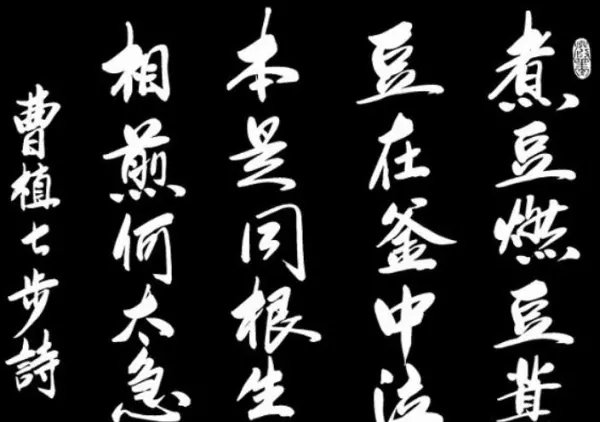 煮豆燃豆萁
豆在釜中泣
本是同根生
相煎何太急
曹植七步詩